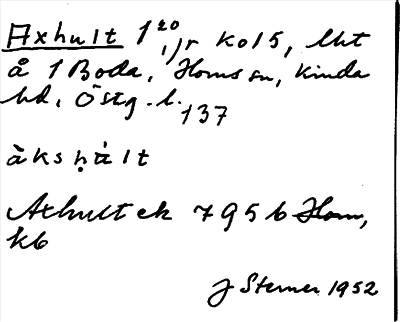 Axhult 1²⁰ 1/1 r ko 15, lht
å 1 Boda, Horns sn, Kinda
hd, Östg. l.
137
àksḥàlt
Axhult ek 7956 Horn,
k6
J Sterner 1952